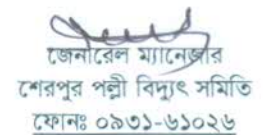 জেনারেল ম্যানেজার
শেরপুর পল্লী বিদ্যুৎ সমিতি
ফোনঃ ০৯৩১-৬১০২৬